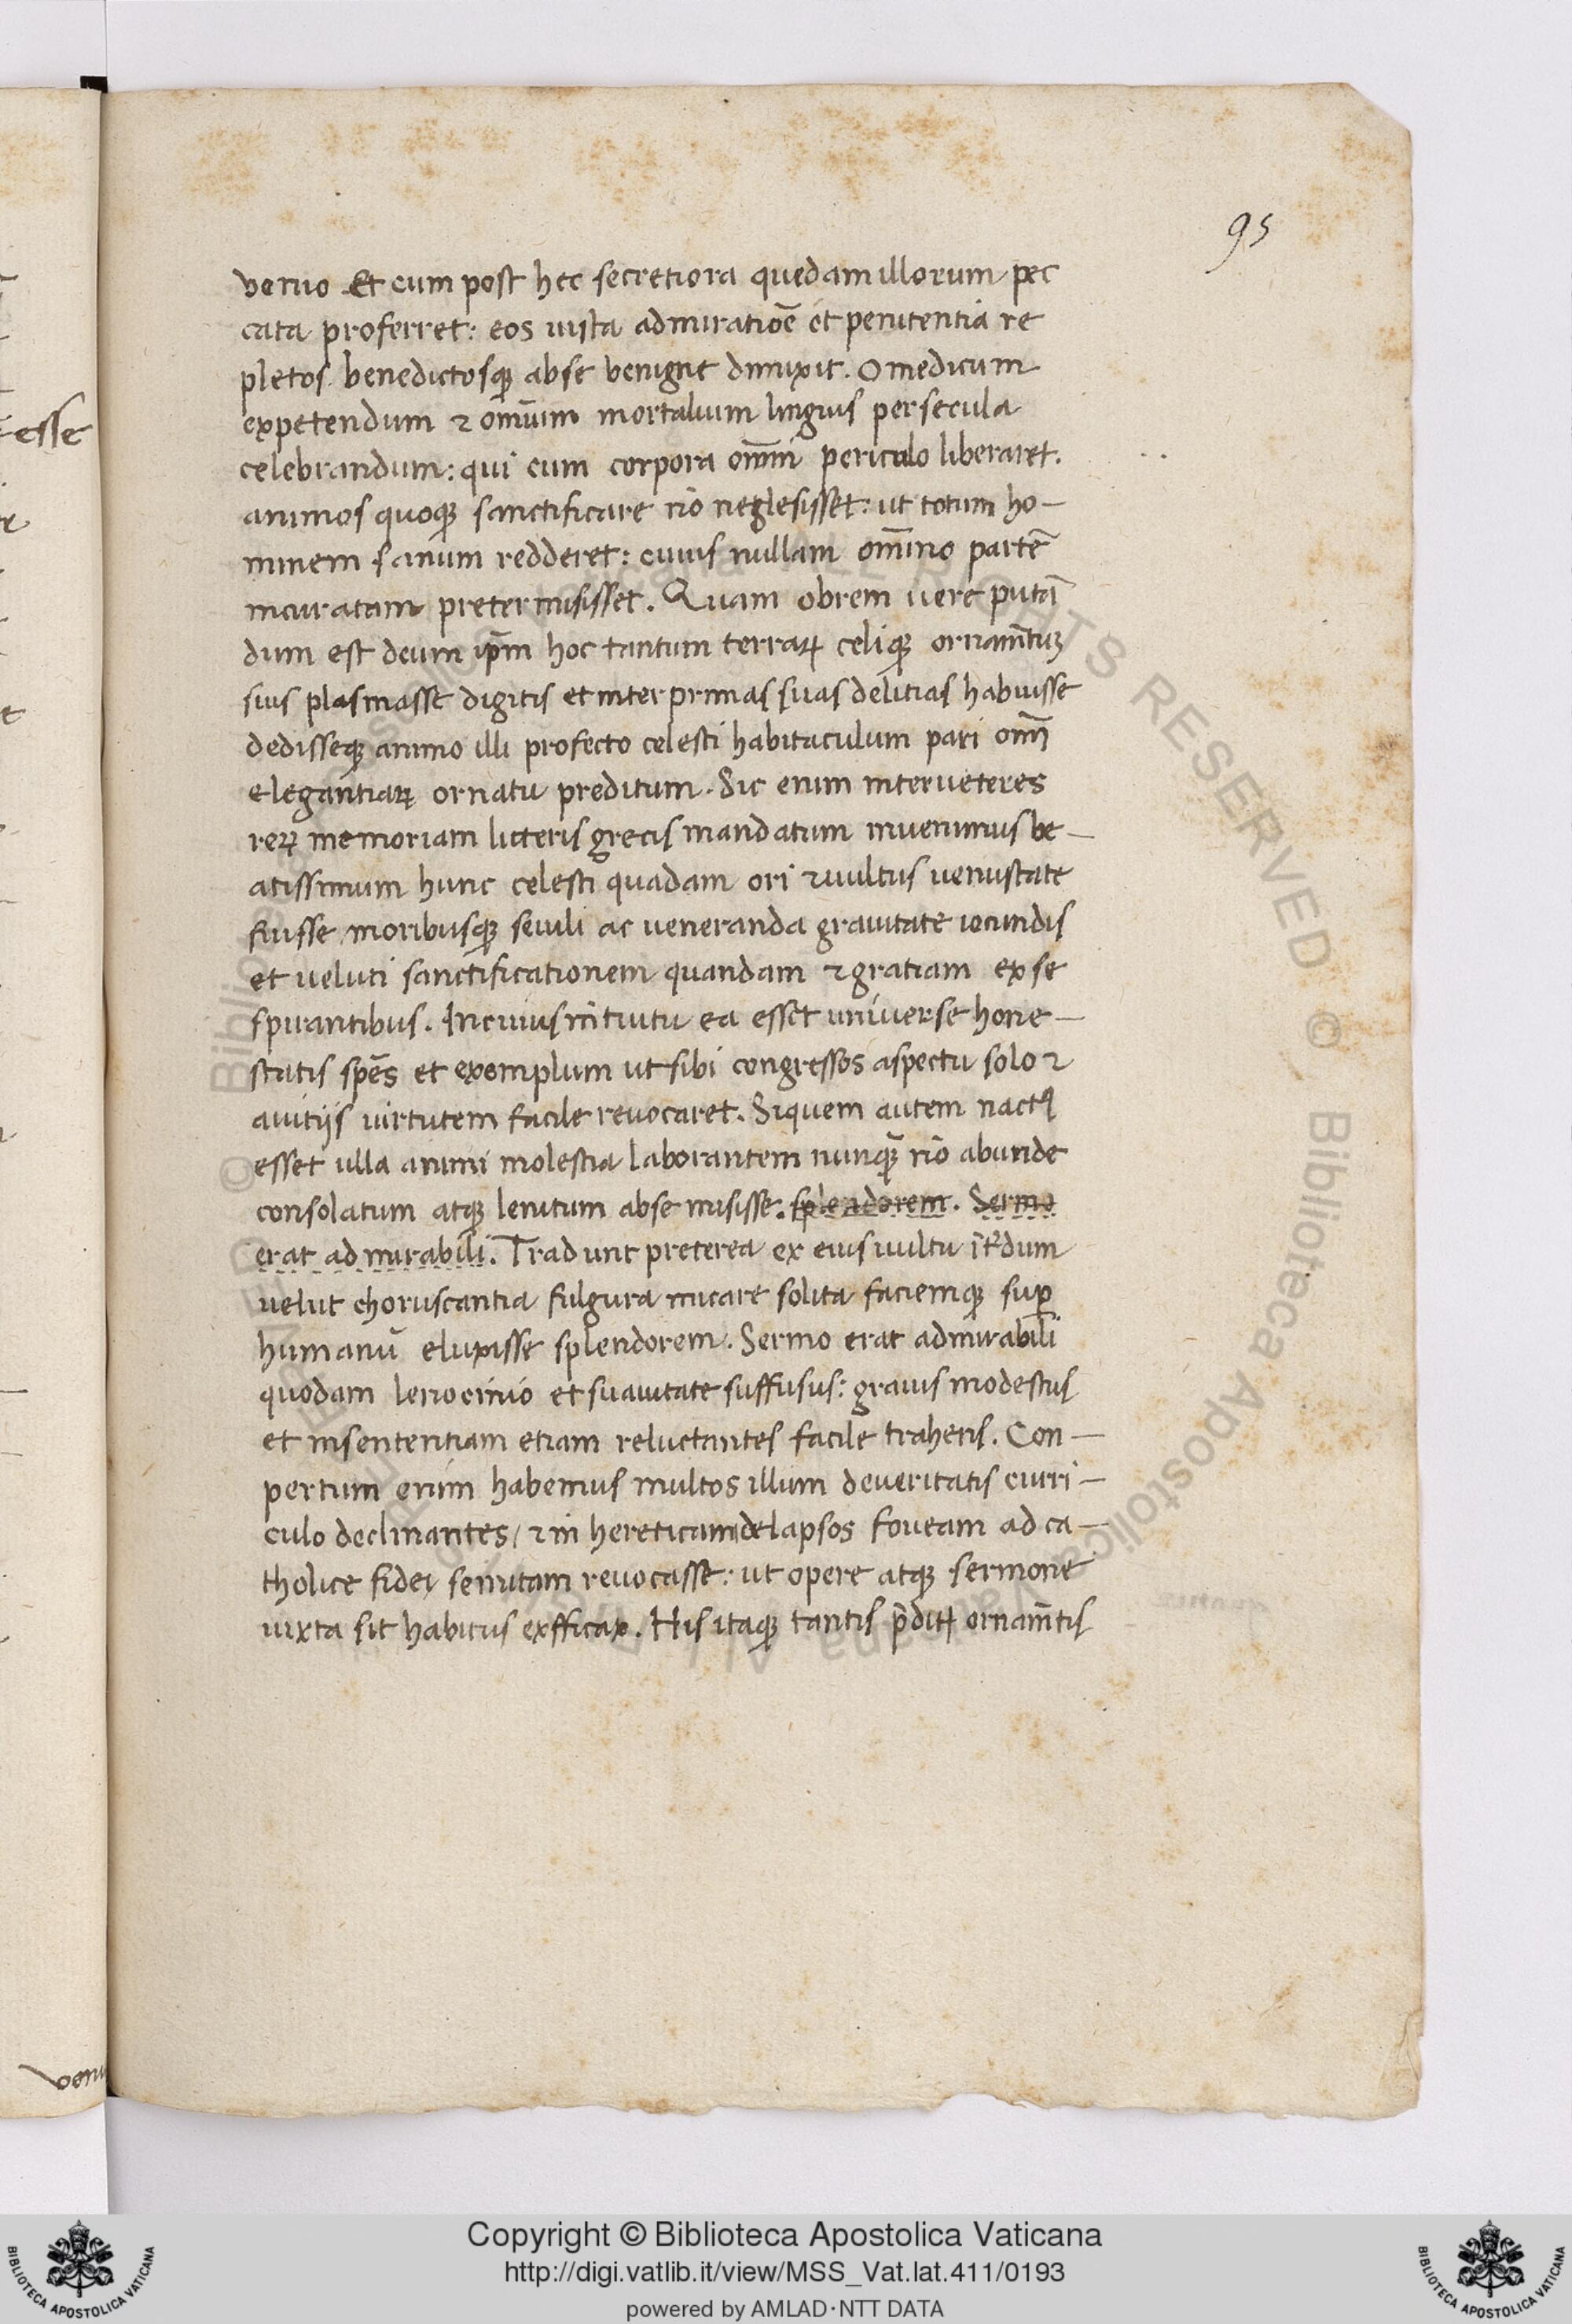 esse
venu
95
venio Et cum post hec secretiora quedam illorum pec
cata proferret: eos iusta admiratiõe et penitentia re
pletos benedictosqꝫ abse benigne dimixit. O medicum
expetendum ⁊ omĩum mortalium linguis per secula
celebrandum: qui cum corpora om̃i periculo liberaret.
animos quoqꝫ sanctificare nõ neglesisset: ut totum ho—
minem sanum redderet: cuius nullam om̃ino partẽ
incuratam pretermisisset. Quam obrem vere putã
dum est deum ip̃m hoc tantum terraꝝ celiqꝫ ornam̃tuꝫ
suis plasmasse digitis et inter primas suas delitias habuisse
dedisseqꝫ animo illi profecto celesti habitaculum pari om̃i
elegantiaꝝ ornatu preditum. Sic enim inter veteres
reꝝ memoriam licteris grecis mandatum invenimus be—
atissimum hunc celesti quadam ori ⁊ vultus venustate
fuisse moribusqꝫ senili ac veneranda gravitate iocundis
et veluti sanctificationem quandam ⁊ gratiam ex se
spirantibus. In cuius intuitu ea esset universe hone—
statis spẽs et exemplum ut sibi congressos aspectu solo ⁊
avitiis virtutem facile revocaret. Siquem autem nactꝰ
esset ulla animi molestia laborantem nunqꝫ̃ nõ abunde
consolatum atqꝫ lenitum abse misisse. splendorem. Sermo
erat admirabili. Tradunt preterea ex eius vultu ĩtꝛdum
velut choruscantia fulgura micare solita faciemqꝫ suꝑ
humanũ eluxisse splendorem. Sermo erat admirabili
quodam lenocinio et suavitate suffusus: gravis modestus
et insententiam etiam reluctantes facile trahens. Con—
pertum enim habemus multos illum deveritatis curri—
culo declinantes / ⁊ in hereticam delapsos foveam ad ca—
tholice fidei semitam revocasse: ut opere atqꝫ sermone
iuxta sit habitus exfficax. His itaqꝫ tantis p̃ditꝰ ornam̃tis
© Biblioteca Apostolica Vaticana ALL RIGHTS RESERVED © Biblioteca Apostolica Vaticana ALL RIGHTS RESERVED
Copyright © Biblioteca Apostolica Vaticana
http://digi.vatlib.it/view/MSS_Vat.lat.411/0193
powered by AMLAD·NTT DATA
BIBLIOTECA APOSTOLICA VATICANA
BIBLIOTECA APOSTOLICA VATICANA